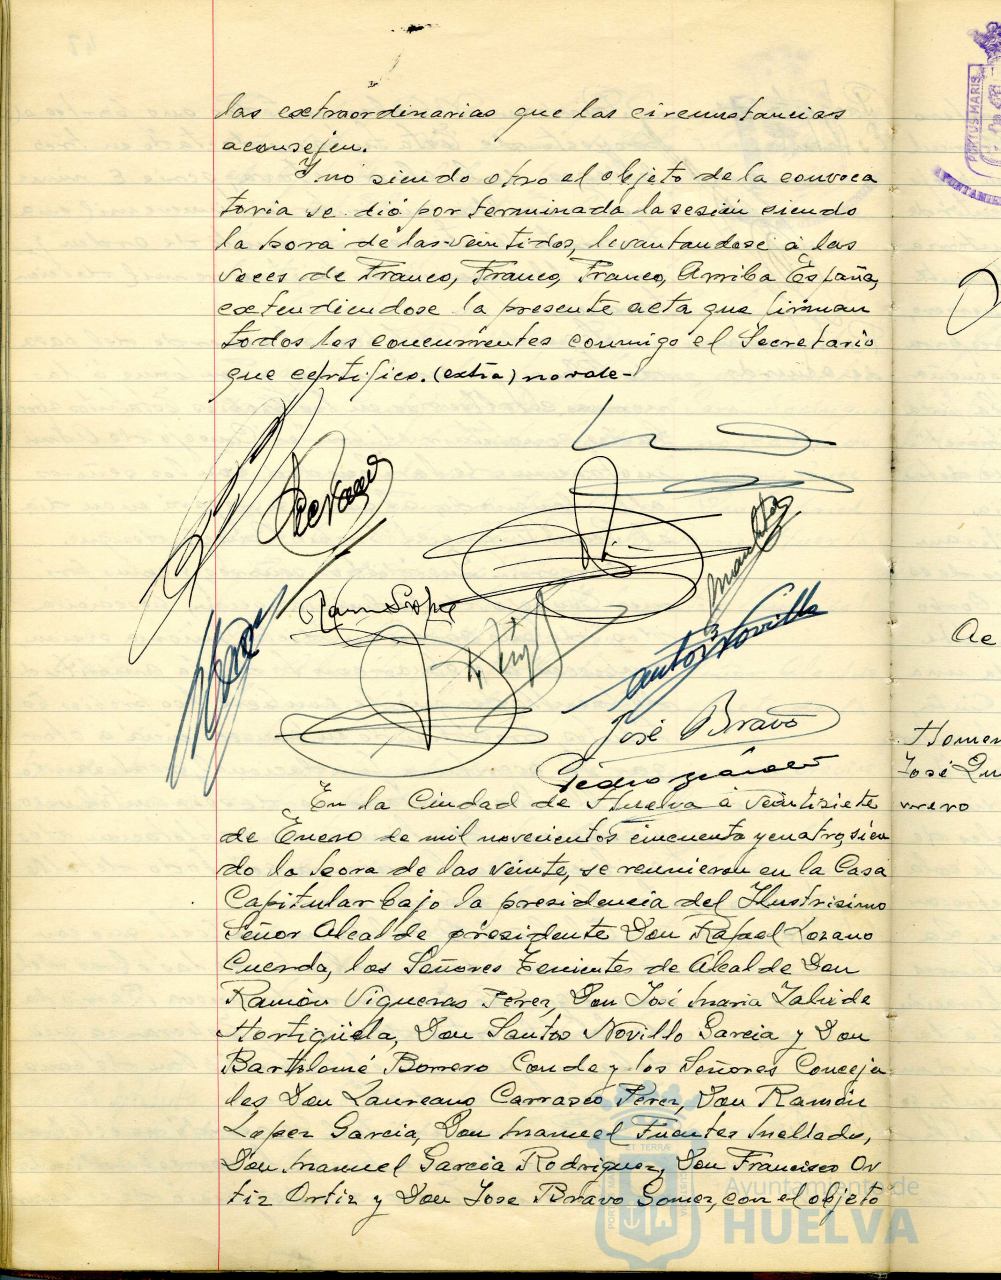 las extraordinarias que las circunstancias
aconsejen.
Y no siendo otro el objeto de la convoca
toria se dió por terminada la sesión siendo
la hora de las veintidos, levantandose á las
voces de Franco, Franco, Franco, Arriba España,
extendiendose la presente acta que firman
todos los concurrentes conmigo el Secretario
que certifico. (extra) no vale-
Ramon Lopez
José Bravo
Pedro
En la Ciudad de Huelva á veintisiete
de Enero de mil novecientos cincuenta y cuatro, sien
do la hora de las veinte, se reunieron en la Casa
Capitular bajo la presidencia del Ilustrisimo
Señor Alcalde presidente Don Rafael Lozano
Cuerda, los Señores Tenientes de Alcalde Don
Ramón Vigueras Pérez, Don José Maria
Hortigüela, Don Santos Novillo Garcia y Don
Bartolomé Borrero Conde y los Señores Conceja
les Don Laureano Carrasco Perez, Don Ramón
Lopez Garcia, Don Manuel Fuentes Mellado,
Don Manuel Garcia Rodriguez, Don Francisco Or
tiz Ortiz y Don Jose Bravo Gomez, con el objeto
PORTUS MARIS
Ac
Homen
José Qu
rrero
Ayuntamiento de
HUELVA